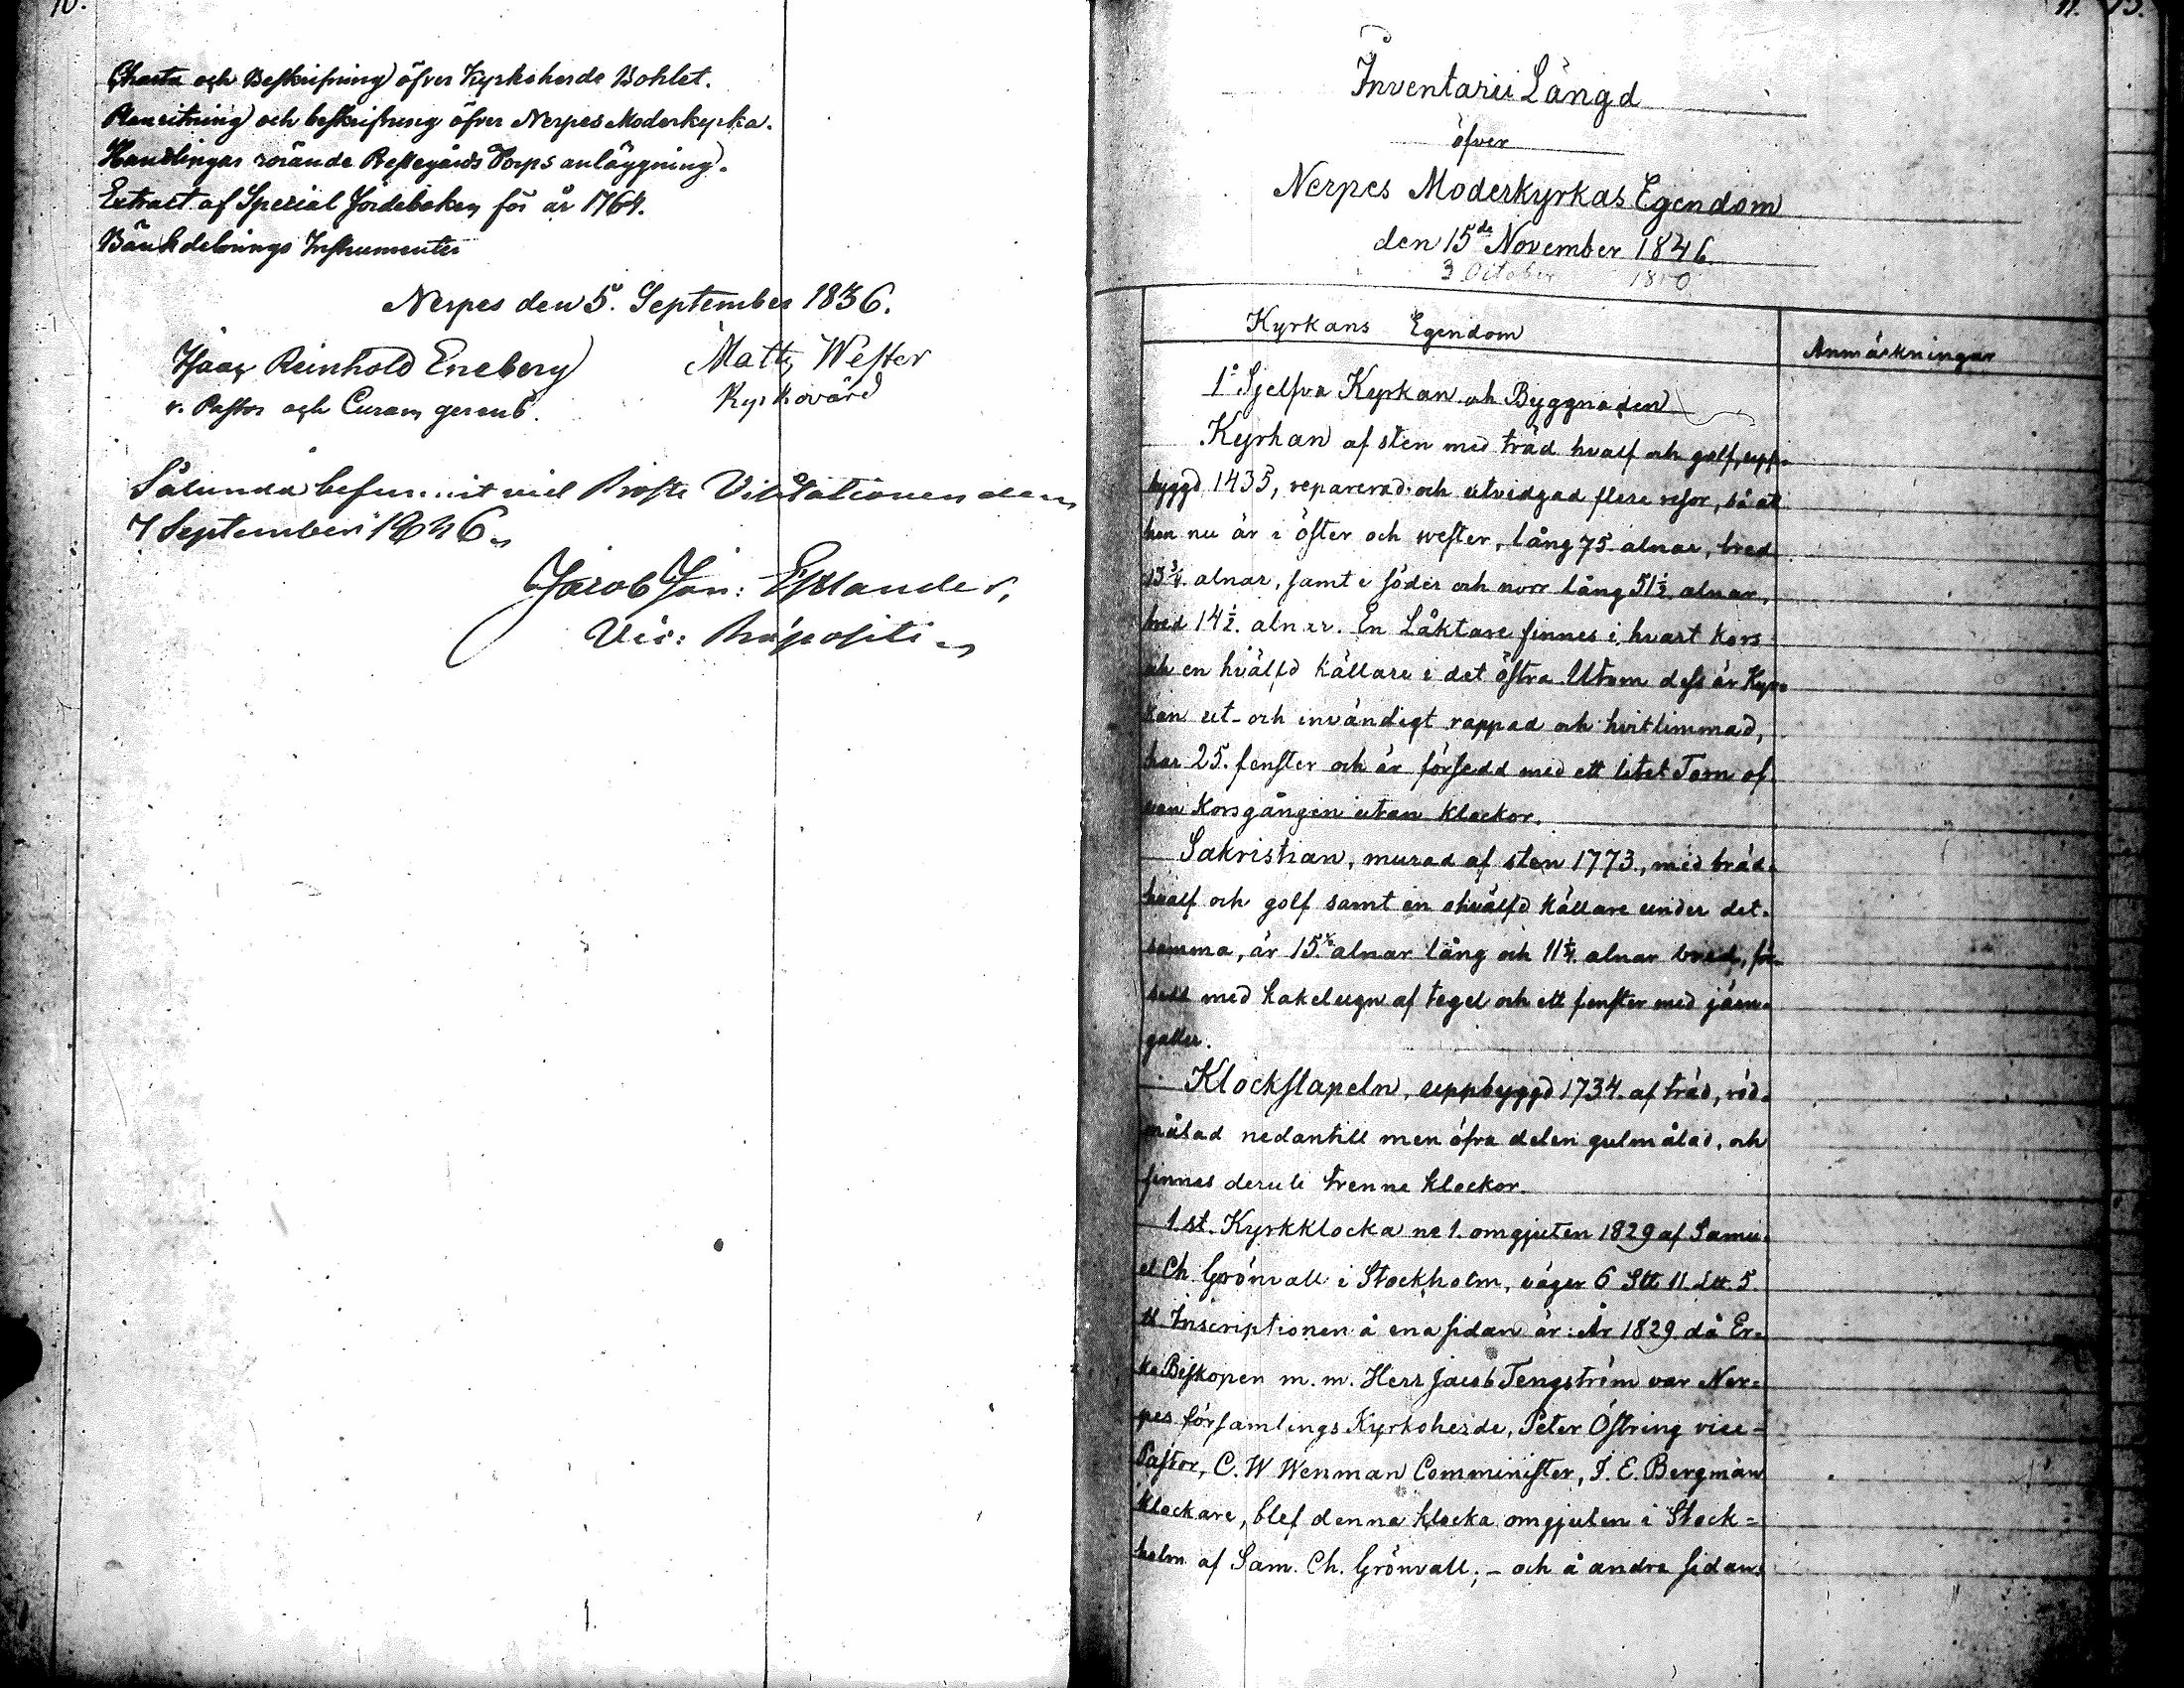 10.
Charta och Beskrifning öfver Kyrkoherde Bohlet.
Planritning och beskrifning öfver Nerpes Moderkyrka.
Handlingar rörande Prestegårds Torps anläggning.
Extract af Special Jordeboken för år 1764.
Bänkdelnings Instrumenter
Nerpes den 5. September 1836.
Isaac Reinhold Eneberg
Matts Wester
v. Pastor och Curam gerens.
Kyrkovärd
Sålunda befunnit vid Proste Visitationen den
7 September 1846.
Jacob Joh: Estlander,
Vic: Præpositi
11.
Inventarii Längd
öfver
Nerpes Moderkyrkas Egendom
den 15de November 1846.
3 October 1850
Kyrkans Egendom
Anmärkningar
1° Sjelfva Kyrkan och Byggnaden
Kyrkan af sten med träd hvalf och golf, upp-
byggd 1435, reparerad och utvidgad flere resor, så at
hon nu är i öster och wester, lång 75. alnar, bred
15 3/4. alnar, samt i söder och norr lång 51 1/2 alnar,
bred 14 1/2. alnar. En Läktare finnes i hvart kors
och en hvälfd källare i det östra. Utom dess är Kyr-
kan ut- och invändigt rappad och hvitlimmad,
har 25. fenster och är försedd med ett litet Torn of-
van Korsgången utan klockor.
Sakristian, murad af sten 1773., med träd-
hvalf och golf samt en hvälfd källare under det-
samma, är 15 1/2 alnar lång och 11 1/4. alnar bred, för-
sedd med kakelugn af tegel och ett fenster med järn-
galler.
Klockstapeln, uppbyggd 1734. af träd, röd-
målad nedantill men öfra delen gulmålad, och
finnes deruti trenne klockor.
1. st. Kyrkklocka no 1. omgjuten 1829 af Samu-
el Ch. Grönvall i Stockholm, väger 6 S℔ 11. L℔. 5.
℔. Inscriptionen å ena sidan är: År 1829 då Er-
ke Biskopen m. m. Herr Jacob Tengström var Ner-
pes församlings Kyrkoherde, Peter Östring vice-
Pastor, C. W Wenman Comminister, J. E. Bergman
klockare, blef denna klocka omgjuten i Stock-
holm af Sam. Ch. Grönvall; - och å andra sidan: